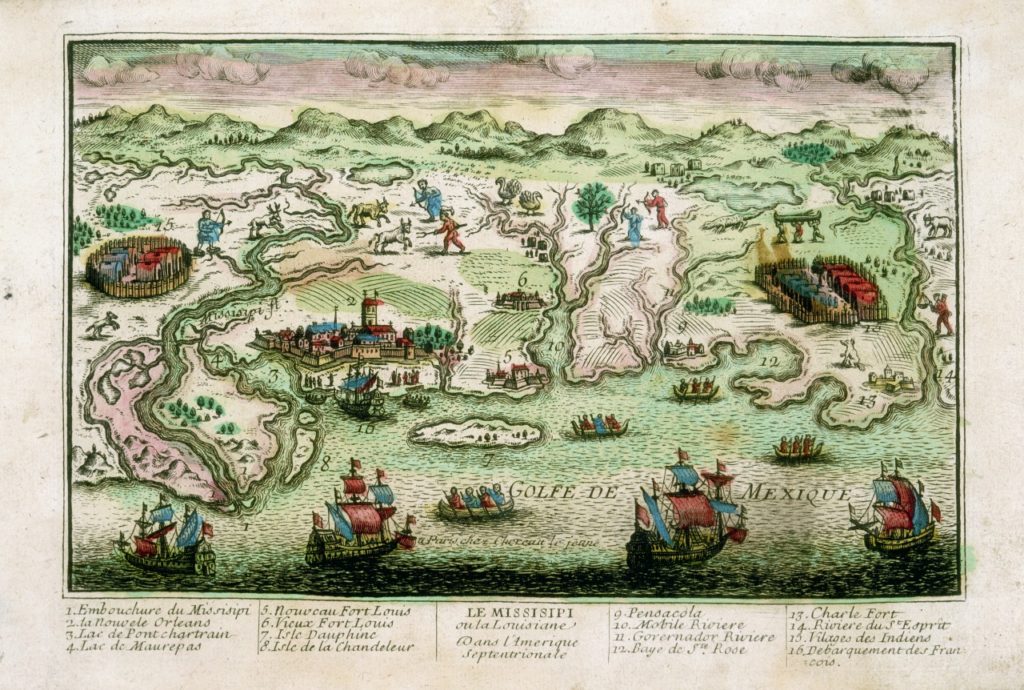 15
Missisipi fl
2
6
4
3
5
10
9
12
11
13
14
16
7
8
1
GOLFE DE MEXIQUE
a Paris chez Chereau le jeune
1. Embouchure du Missisipi
2. la Nouvele Orleans
3. Lac de Pontchartrain
4. Lac de Maurepas
5. Nouveau Fort Louis
6. Vieux Fort Louis
7. Isle Dauphine
8. Isle de la Chandeleur
LE MISSISIPI
ou la Louisiane
Dans l'Amerique
Septentrionale
9. Pensacola
10. Mobile Riviere
11. Governador Riviere
12. Baye de Ste Rose
13. Charle Fort
14. Riviere du St Esprit
15. Vilages des Indiens
16. Debarquement des Fran
cois.